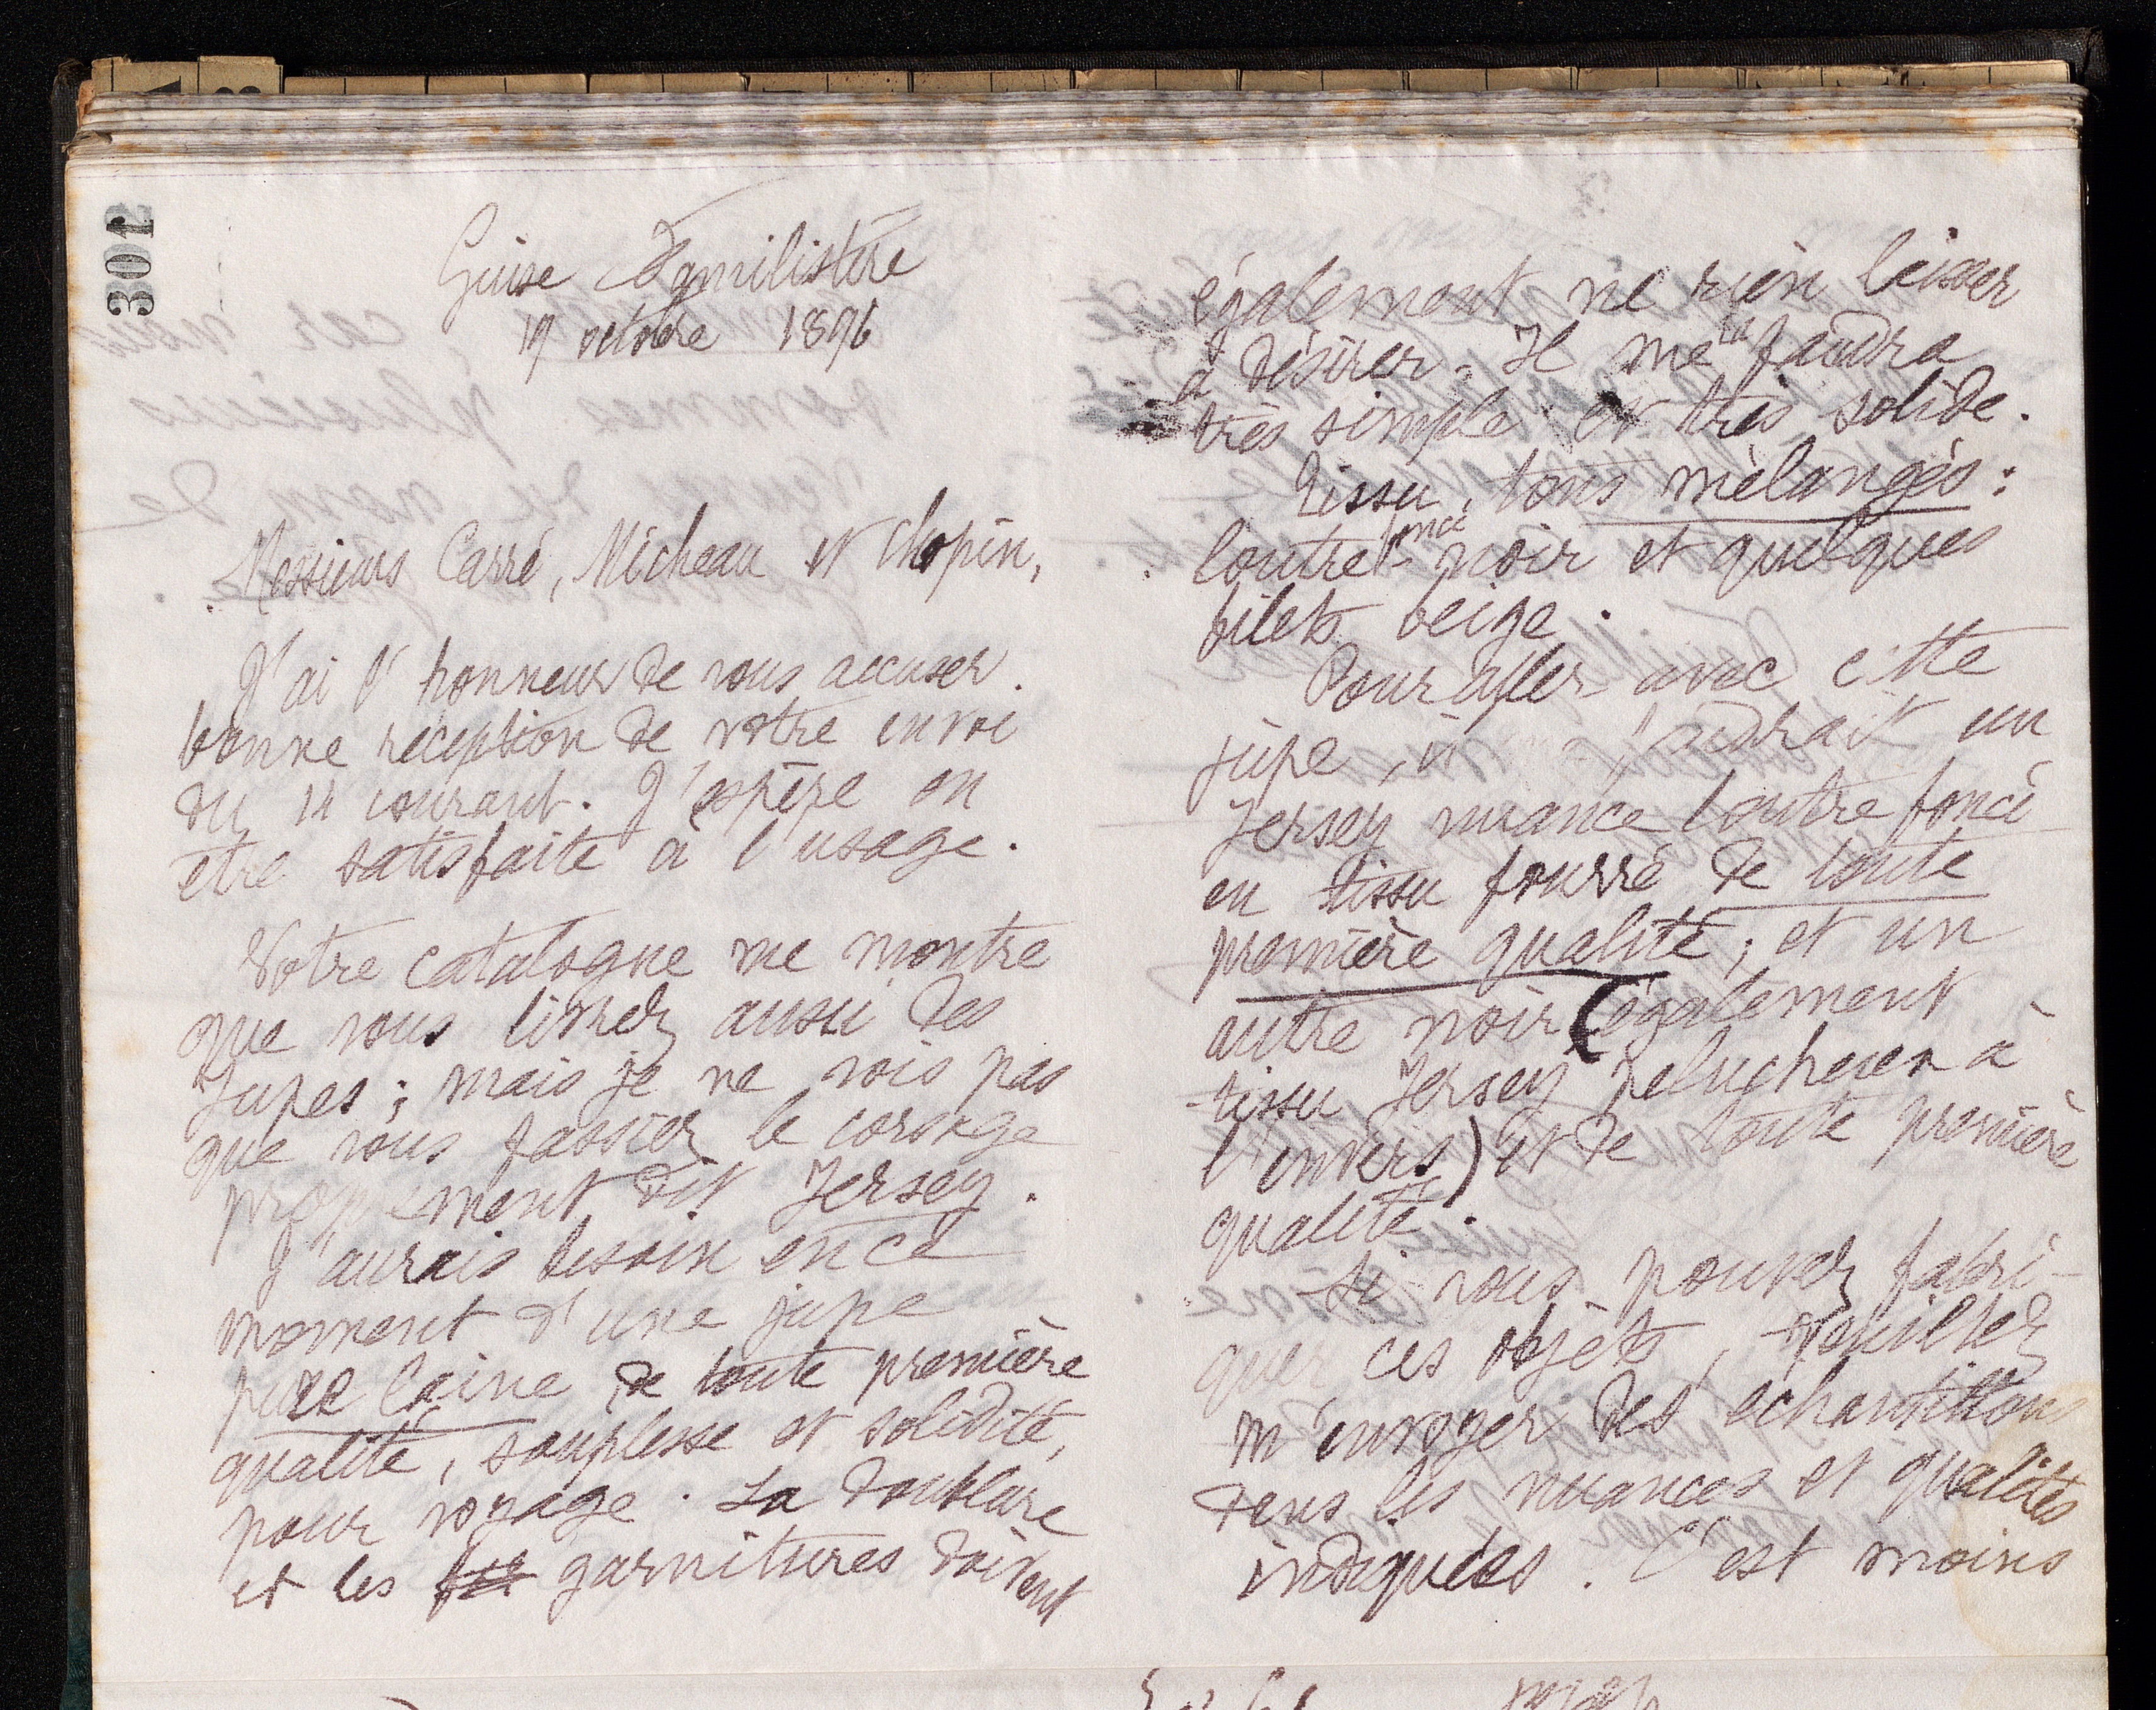 301
Guise Familistère
19 octobre 1896
Messieurs Carré, Micheau et Chopin,
J'ai l'honneur de vous accuser
bonne réception de votre envoi
du 14 courant. J'espère en
être satisfaite à l'usage.
Votre catalogue me montre
que vous livrez aussi des
Jupes ; mais je ne vois pas
que vous fassiez le corsage
proprement dit Jersey.
J'aurais besoin en ce
moment d'une jupe
pure laine de toute première
qualité, souplesse et solidité,
pour voyage. La doublure
et les garnitures doivent
également ne rien laisser
à désirer. Il me la faudra
très simple et très solide.
Tissu, tons mélangés :
loutre foncé - noir et quelques
filets beige.
Pour aller avec cette
jupe, il faudrait un
Jersey nuance loutre foncé
en tissu fourré de toute
première qualité ; et un
autre noir (également
tissu Jersey pelucheux à
l'envers) et de toute première
qualité.
Si vous pouvez fabri-
quer ces objets, veuillez
m'envoyer des échantillons
dans les nuances et qualités
indiquées. C'est moins